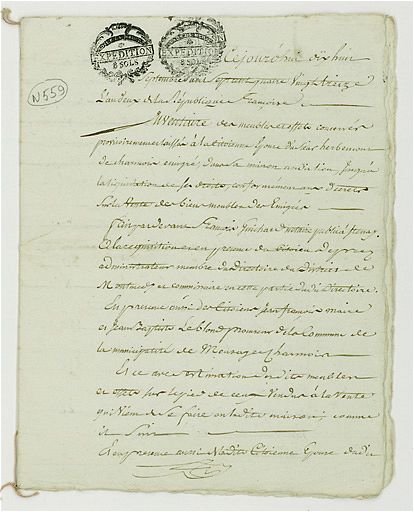 EXPEDITION
8 SOLS
EXPEDITION
8 SOLS
N 559
Cejourd'hui dix huit
Septembre sept quatre vingt treize
L'an deux de la République françoise
Inventaire des meubles et effets conservés
provisoirement à la citoyenne épouse du sieur herbemont
de charmois émigré, dans la maison
la liquidation de ses droits, conformément aux décrets
sur la vente des biens meubles des Emigrés
François notaire public à Stenay
Et la requisition et en presence du citoien
administrateur membre du directoire du District de
Montmedi et commissaire en cette partie dudit Directoire.
En presence aussi des citoiens Jean françois maire
et Jean Baptiste Le blond procureur de la Commune de
la municipalité de Mouzay Charmois
Et ce avec estimation desdits meubles
et effets sur le pied de ceux vendus à la vente
qui vient de se faire en ladite maison; comme
il suit
En presence aussi de ladite Citoienne épouse dudit